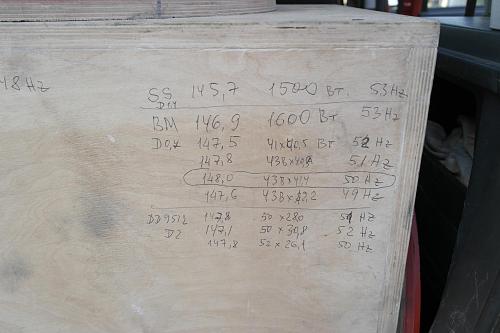 48Hz
SS 145,7 1500 Вт. 53Hz
D1,1
BM 146,9 1600 Вт 53Hz
147,5 41x40,5 Вт 52Hz
147,8 43В 51Hz
148,0 43В×41,4 50 Hz
147,6 43В×42,2 49 Hz
147,8 50×28,0 Hz
D2 147,1 50×30,8 52 Hz
147,8 52×26,1 50 Hz